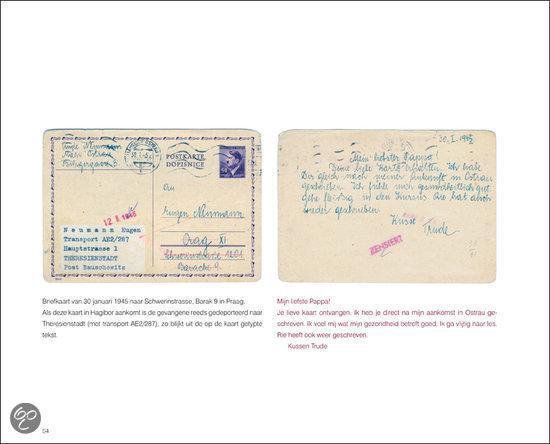 Trude Neumann
Mähr. Ostrau
POSTKARTE
DOPISNICE
An
Eugen Neumann
Prag XI
Schwerinstrasse 1201
Baracke 9.
12 II 1945
Neumann Eugen
Transport AE2/287
Hauptstrasse 1
THERESIENSTADT
Post Bauschowitz
30.I.1945
Mein liebster Pappa!
Deine liebe Karte erhalten. Ich habe
Dir gleich nach meiner Ankunft in Ostrau
geschrieben. Ich fühle mich gesundheitlich gut
gehe fleissig in den Kurs. hat auch
wieder geschrieben.
Küsse
Trude
ZENSIERT
Briefkaart van 30 januari 1945 naar Schwerinstrasse, Barak 9 in Praag.
Als deze kaart in Hagibor aankomt is de gevangene reeds gedeporteerd naar
Theresienstadt (met transport AE2/287), zo blijkt uit de op de kaart getypte
tekst.
Mijn liefste Pappa!
Je lieve kaart ontvangen. Ik heb je direct na mijn aankomst in Ostrau ge-
schreven. Ik voel mij wat mijn gezondheid betreft goed. Ik ga vlijtig naar les.
Rie heeft ook weer geschreven.
Kussen Trude
54